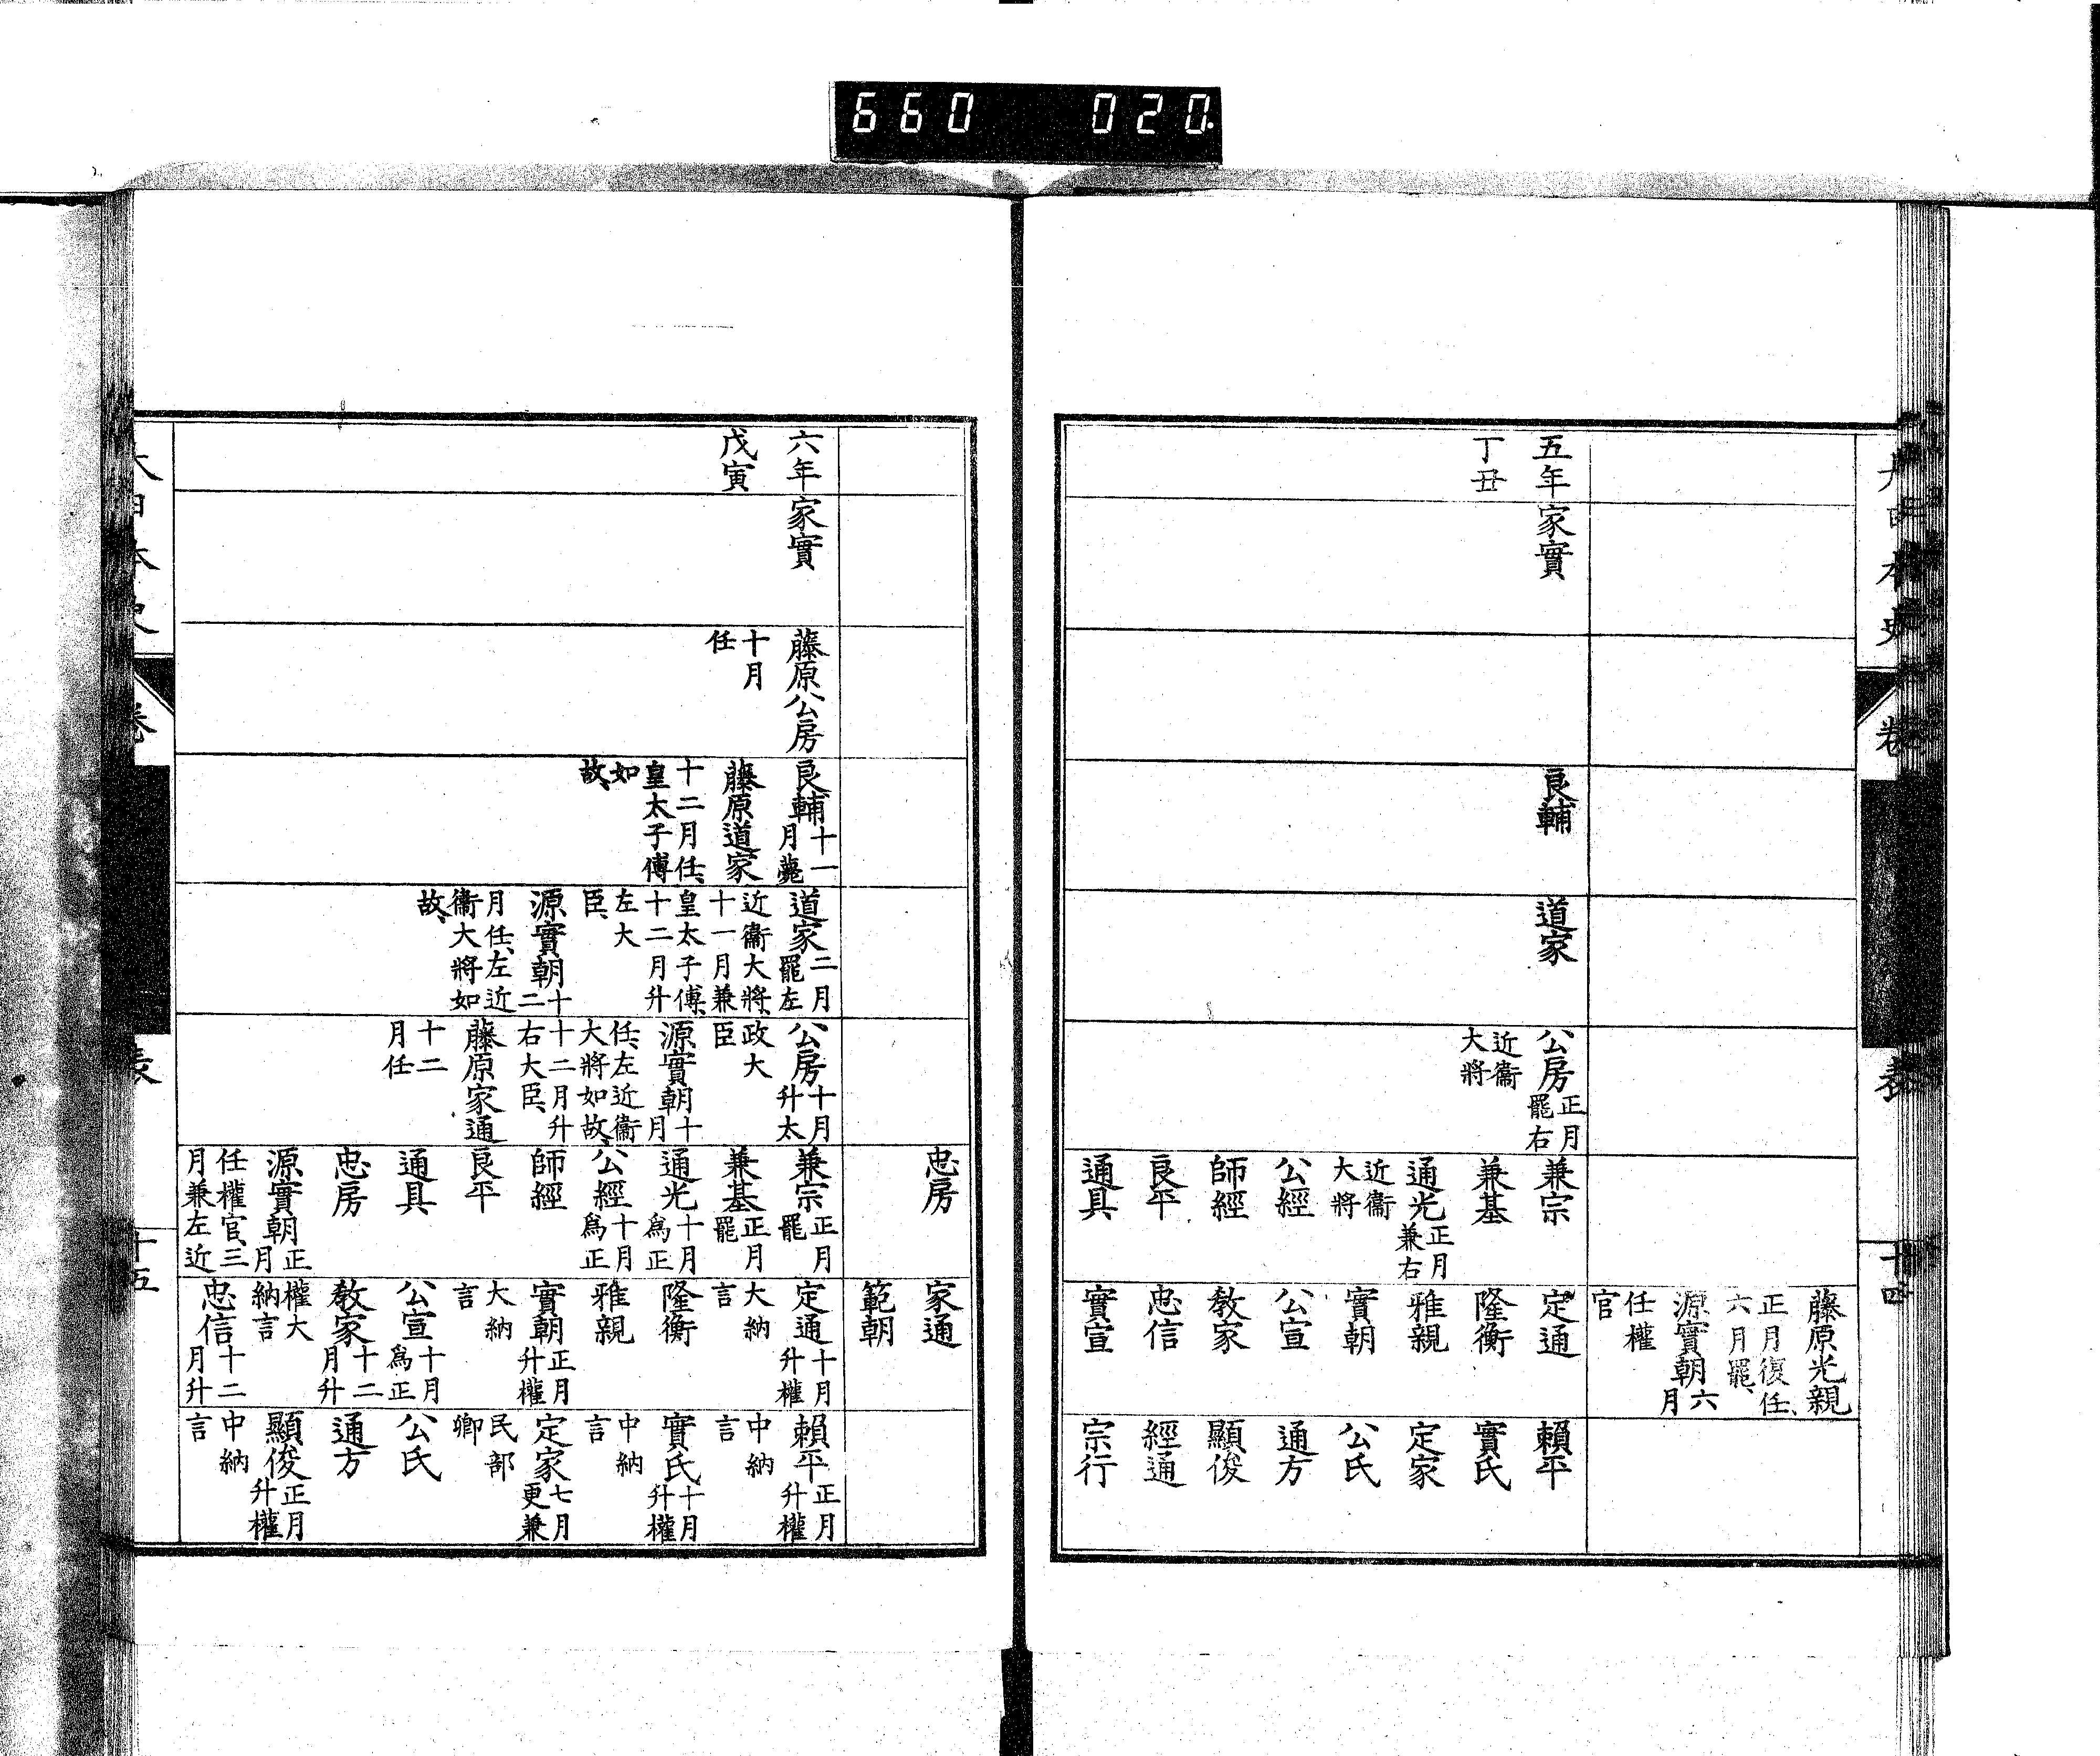 660 020
藤原光親
正月復任、
六月罷、
源實朝六月
任權
官
五年
丁丑
家實
良輔
道家
公房正月罷右
近衞
大將
兼宗
兼基
通光正月兼右
近衞
大將
公經
師經
良平
通具
定通
隆衡
雅親
實朝
公宣
教家
忠信
實宣
賴平
實氏
定家
公氏
通方
顯俊
經通
宗行
大日本史
卷
表
十四
忠房
家通
範朝
六年
戊寅
家實
藤原公房
十月
任
良輔十一月薨
藤原道家
十二月任、
皇太子傅
如
故、
道家二月罷左
近衞大將、
十一月兼
皇太子傅、
十二月升
左大
臣、
源實朝十二
月任、左近
衞大將如
故、
公房十月升太
政大
臣
源實朝十月
任、左近衞
大將如故、
十二月升
右大臣、
藤原家通
十二
月任
兼宗正月罷
兼基正月罷
通光十月爲正
公經十月爲正
師經
良平
通具
忠房
源實朝正月
任權官、三
月兼左近
定通十月升權
大納
言
隆衡
雅親
實朝正月升權
大納
言
公宣十月爲正
教家十二月升
權大
納言
忠信十二月升
賴平正月升權
中納
言
實氏十月升權
中納
言
定家七月更兼
民部
卿
公氏
通方
顯俊正月升權
中納
言
卷
表
十五